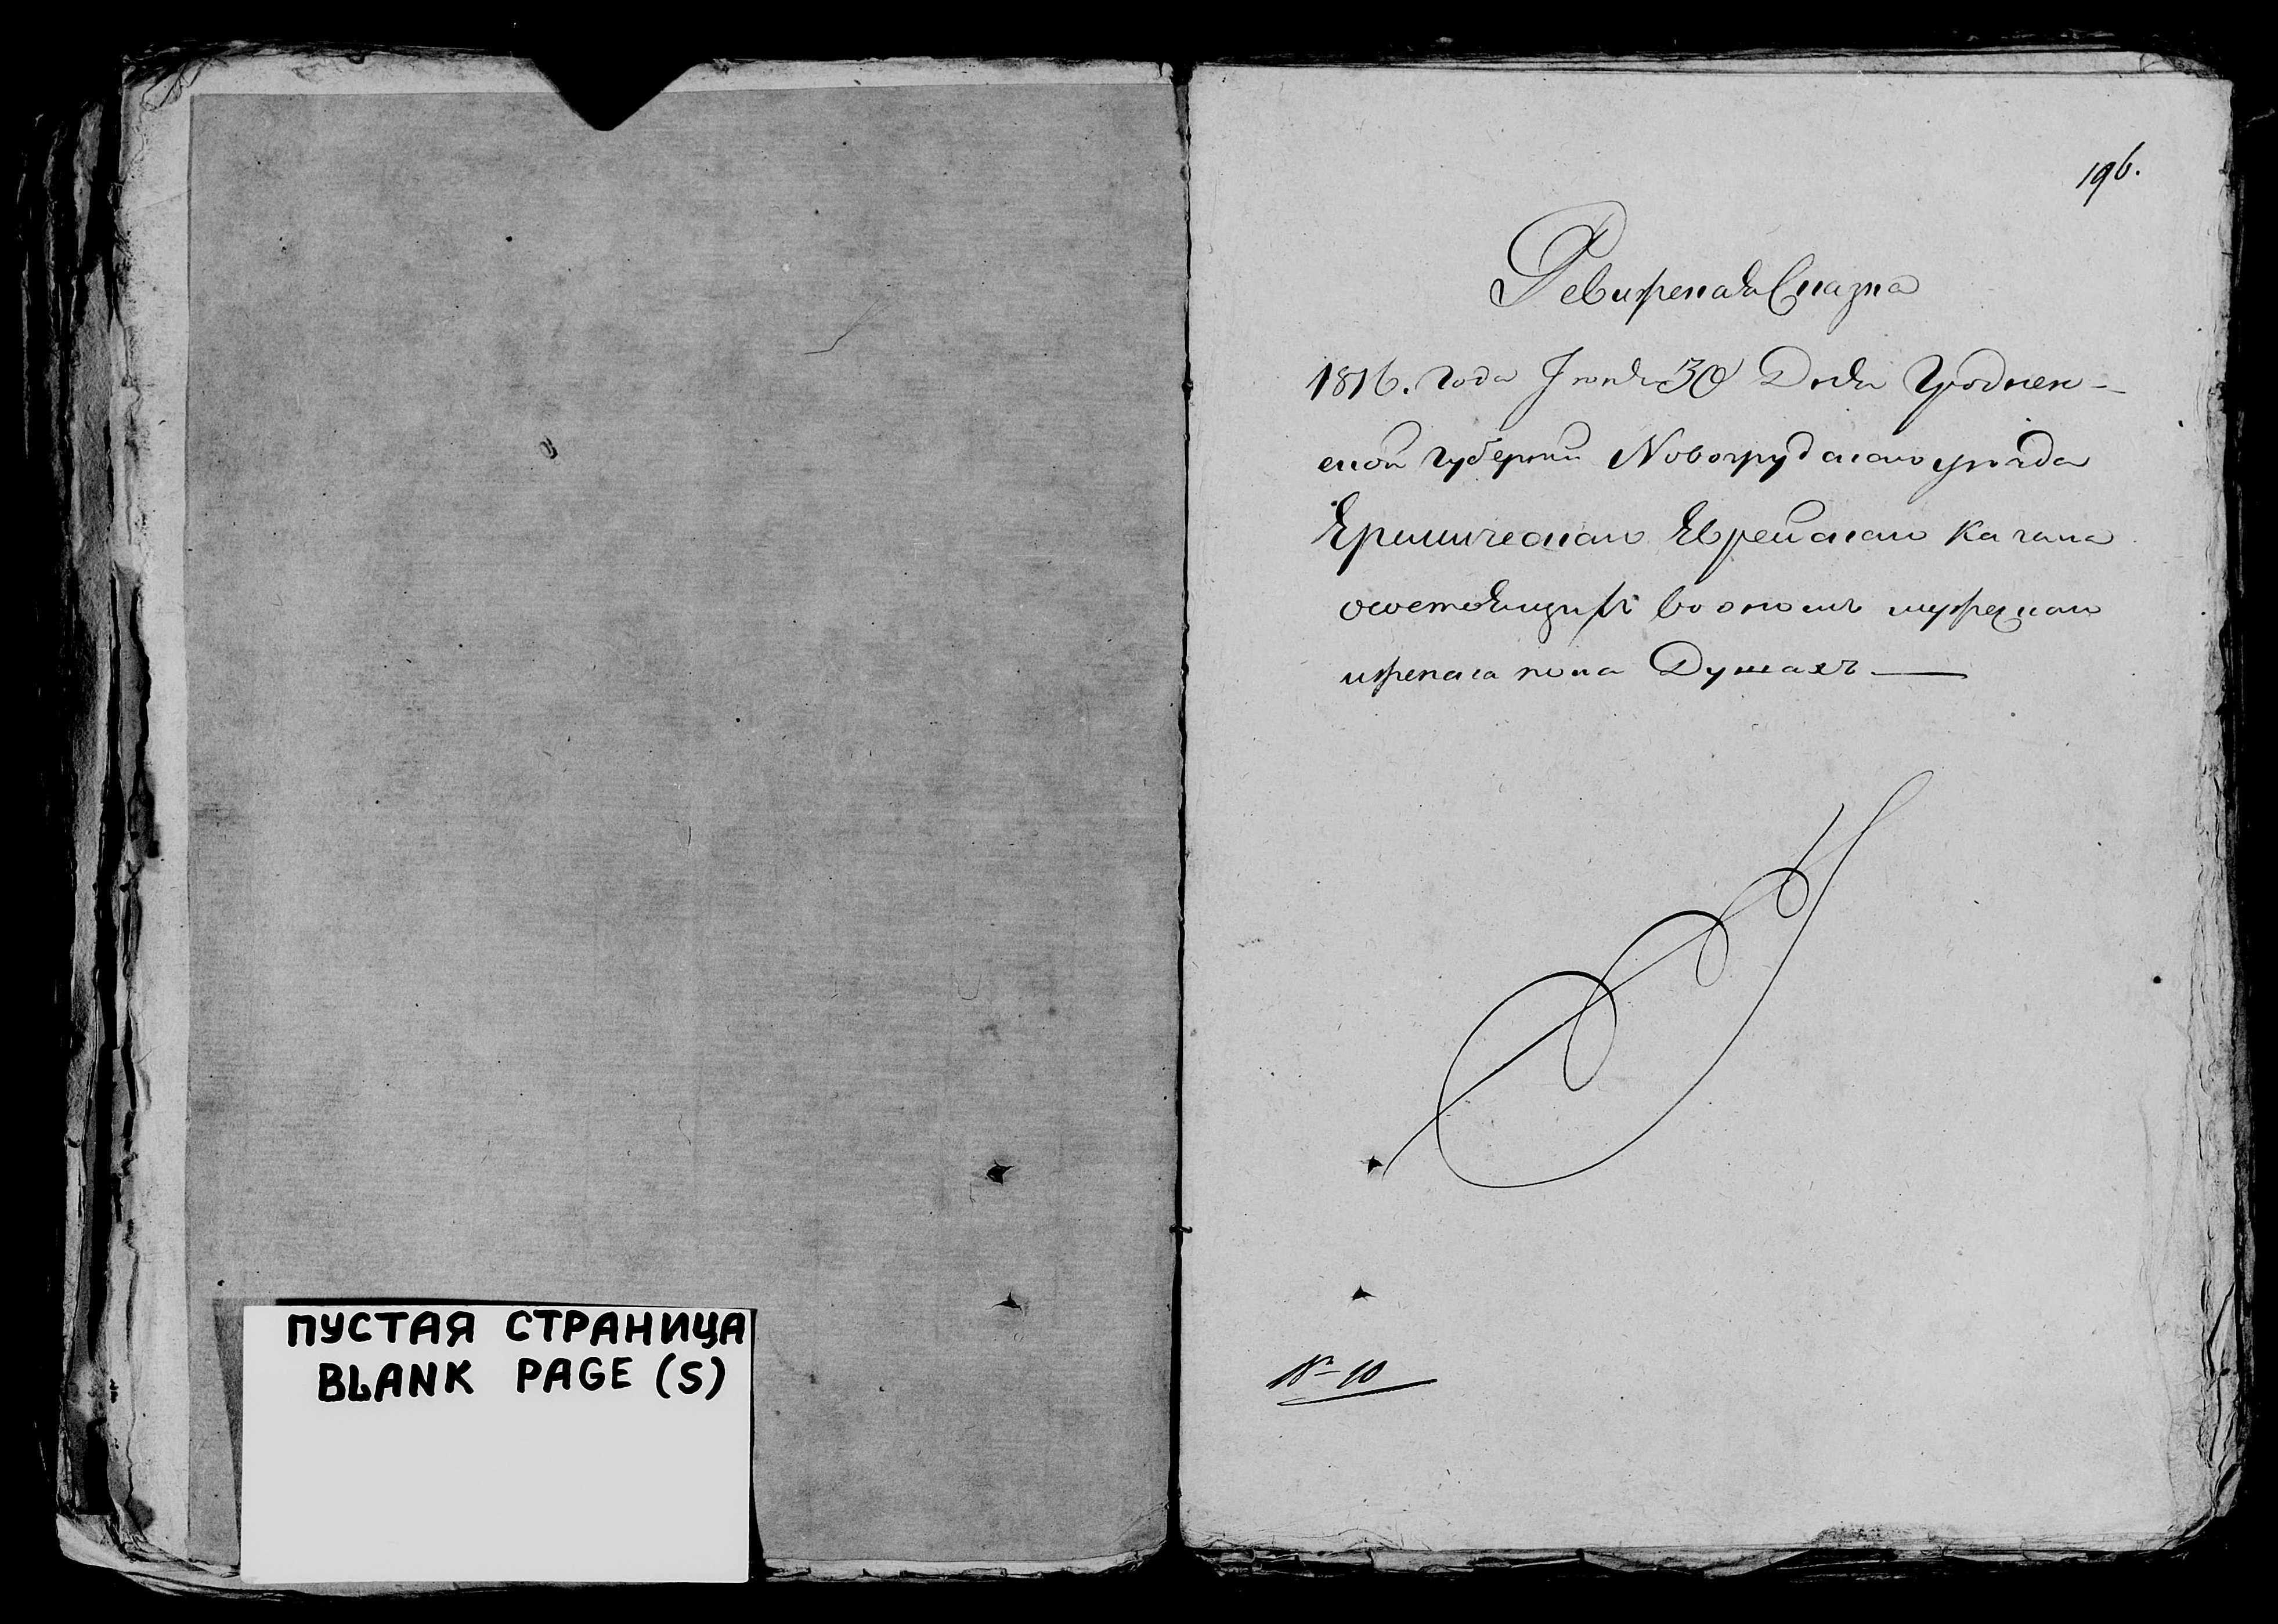 ПУСТАЯ СТРАНИЦА
BLANK PAGE (S)
196.
Ревижская Сказка
1816. года Июня 30 Дня Гроднен-
ской губернии Новогрудскаго уезда
Еврейскаго Кагала
состоящих во оном мужескаго
и женска пола Душахъ
№ 10